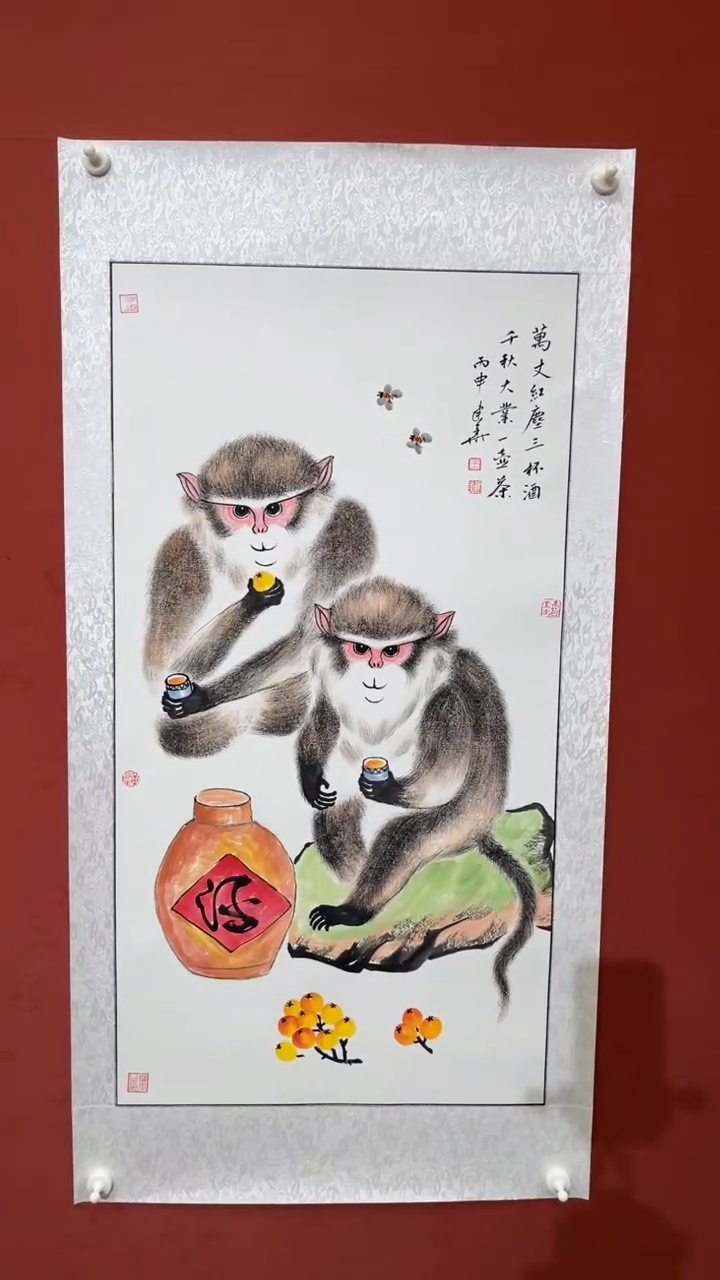 萬丈紅塵三杯酒
千秋大業一壺茶
丙申
酒